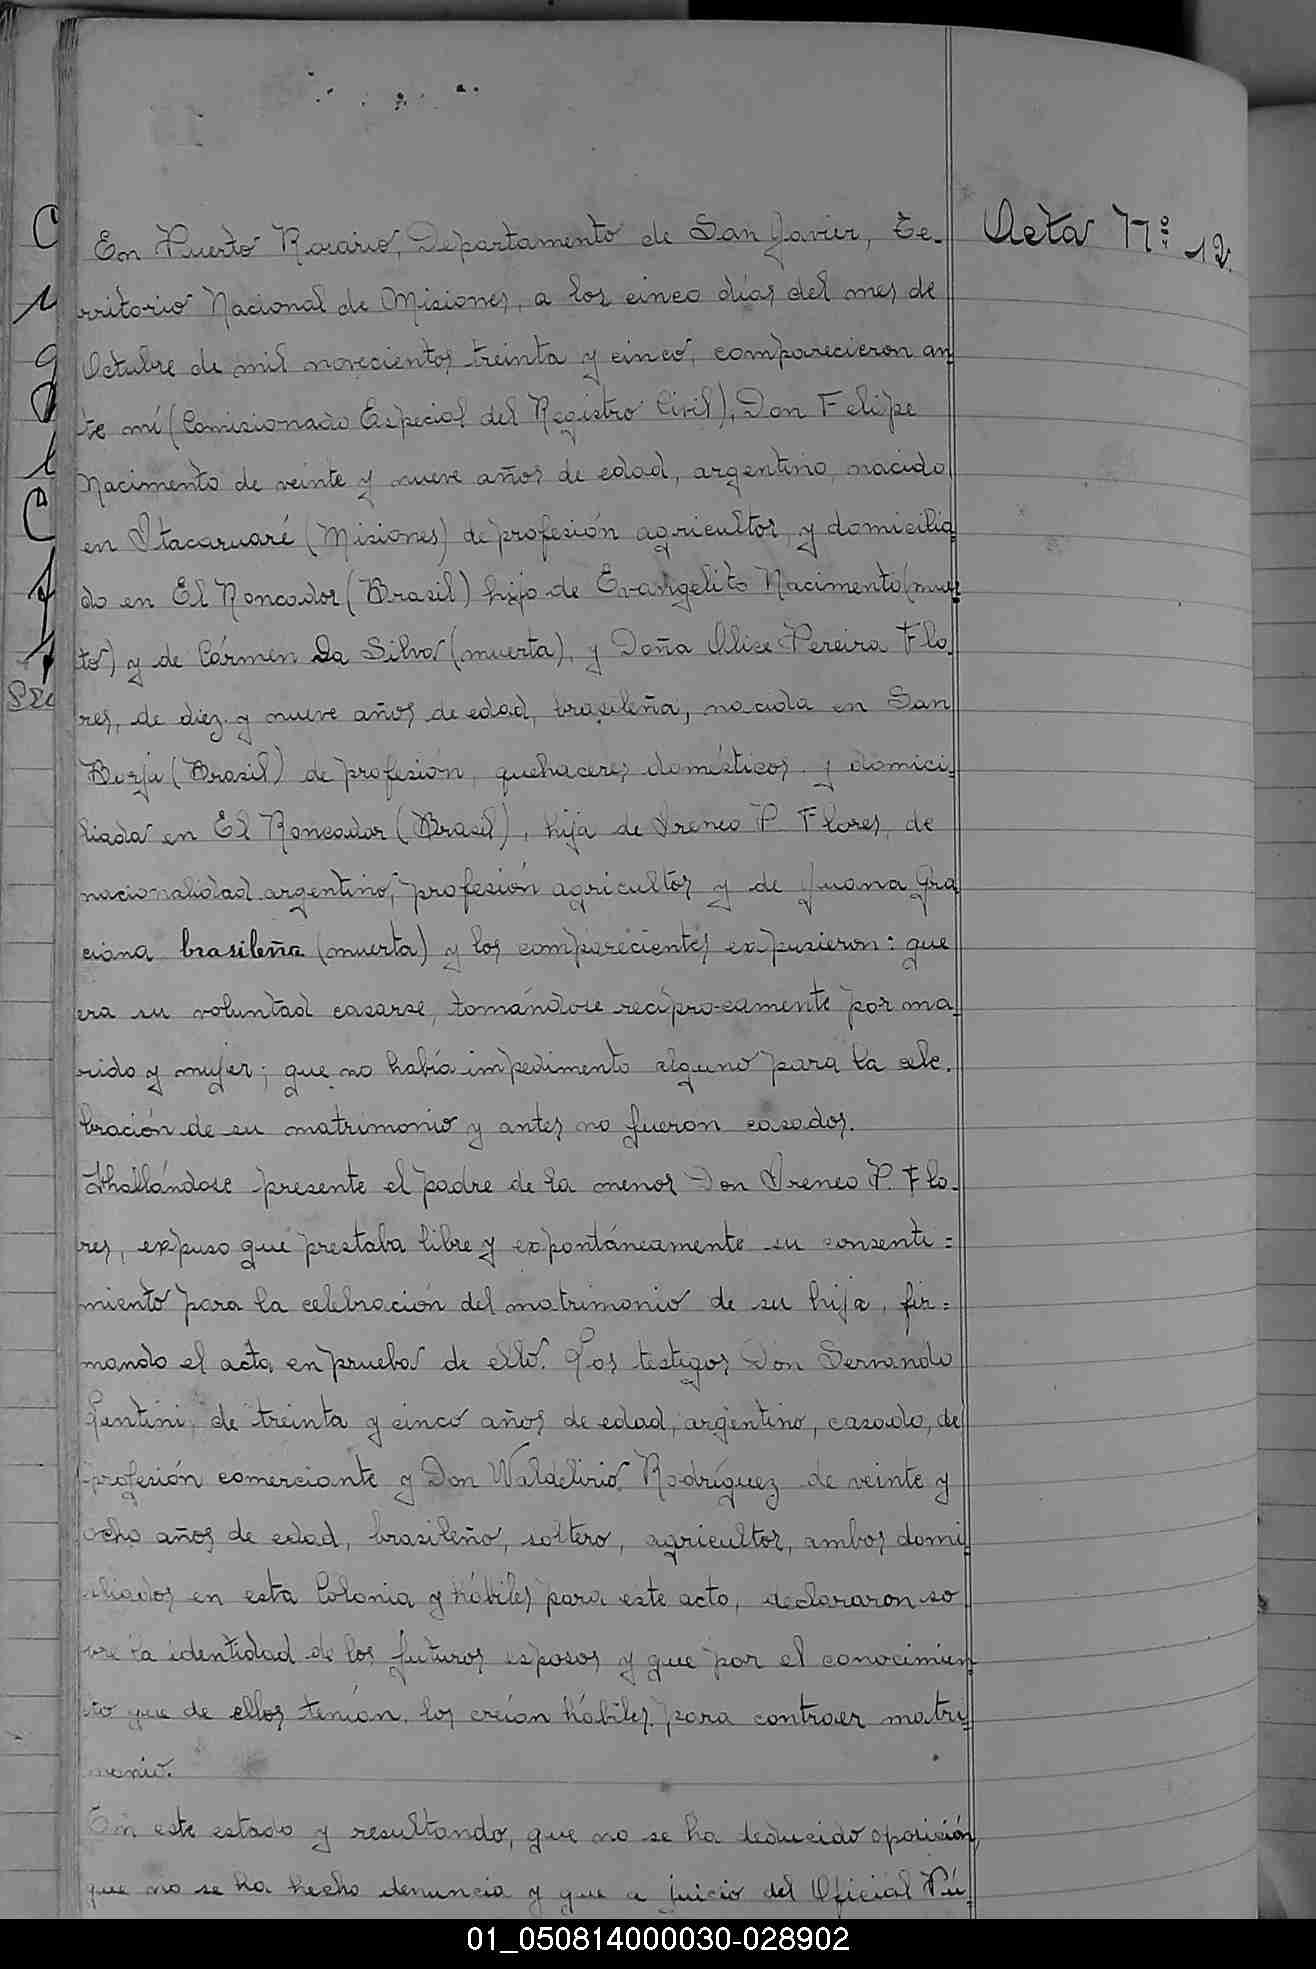 Acta Nº 12.
En Puerto Rosario, Departamento de San Javier, Te-
rritorio Nacional de Misiones, a los cinco días del mes de
Octubre de mil novecientos treinta y cinco, comparecieron an
te mí (Comisionado Especial del Registro Civil), Don Felipe
Nacimento de veinte y nueve años de edad, argentino, nacido
en Itacaruaré (Misiones) de profesión agricultor, y domicilia
do en El Roncador (Brasil) hijo de Evangelito Nacimento (muer
to) y de Cármen Da Silva (muerta), y Doña Alice Pereira Flo-
res, de diez y nueve años de edad, brasileña, nacida en San
Borja (Brasil) de profesión, quehaceres domésticos y domici-
liada en El Roncador (Brasil), hija de Ireneo P. Flores, de
nacionalidad argentino, profesión agricultor y de Juana Gra
ciana brasileña (muerta) y los comparecientes expusieron: que
era su voluntad casarse, tomándose recíprocamente por ma-
rido y mujer; que no había impedimento alguno para la cele-
bración de su matrimonio y antes no fueron casados.
Hallándose presente el padre de la menor Don Ireneo P. Flo-
res, expuso que prestaba libre y expontáneamente su consenti=
miento para la celebración del matrimonio de su hija, fir=
mando el acta en prueba de ello. Los testigos Don Servando
de treinta y cinco años de edad, argentino, casado, de
profesión comerciante y Don Waldelirio Rodríguez de veinte y
ocho años de edad, brasileño, soltero, agricultor, ambos domi
ciliados en esta Colonia y hábiles para este acto, declararon so
bre la identidad de los futuros esposos y que por el conocimien
to que de ellos tenían, los creían hábiles para contraer matri-
monio.
En este estado y resultando, que no se ha deducido oposición,
que no se ha hecho denuncia y que a juicio del Oficial Pú-
01_050814000030-028902